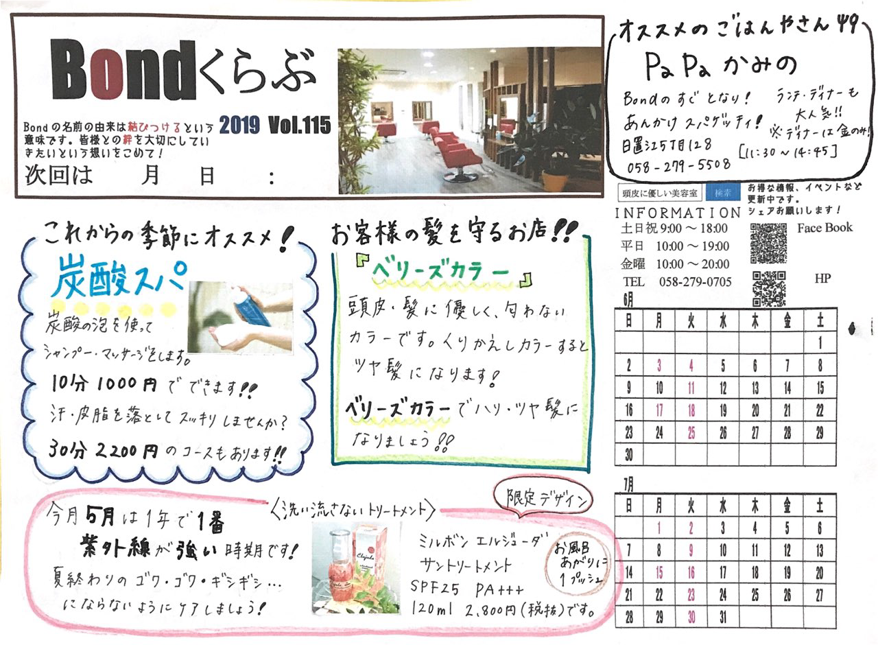 Bondくらぶ
Bondの名前の由来は結びつけるという
意味です。皆様との絆を大切にしてい
きたいという想いをこめて！
2019 Vol.115
次回は 月 日 :
オススメのごはんやさん 49
PaPa かみの
Bondのすぐとなり！
あんかけスパゲッティ！
日置江5丁目128
058-279-5508
ランチ・ディナーも
大人気!!
※ディナーは金のみ！
[11:30～14:45]
頭皮に優しい美容室 検索
お得な情報、イベントなど
更新中です。
シェアお願いします！
INFORMATION
土日祝 9:00～18:00
平日 10:00～19:00
金曜 10:00～20:00
TEL 058-279-0705
Face Book
HP
これからの季節にオススメ！
炭酸スパ
炭酸の泡を使って
シャンプー・マッサージをします。
10分1000円でできます!!
汗・皮脂を落としてスッキリしませんか？
30分2200円のコースもあります!!
お客様の髪を守るお店!!
『ベリーズカラー』
頭皮・髪に優しく、匂わない
カラーです。くりかえしカラーすると
ツヤ髪になります！
ベリーズカラーでハリ・ツヤ髪に
なりましょう!!
6月
日 月 火 水 木 金 土
1
2 3 4 5 6 7 8
9 10 11 12 13 14 15
16 17 18 19 20 21 22
23 24 25 26 27 28 29
30
7月
日 月 火 水 木 金 土
1 2 3 4 5 6
7 8 9 10 11 12 13
14 15 16 17 18 19 20
21 22 23 24 25 26 27
28 29 30 31
今月5月は1年で1番
紫外線が強い時期です！
夏終わりのゴワ・ゴワ・ギシギシ…
にならないようにケアしましょう！
〈洗い流さないトリートメント〉
限定デザイン
ミルボン エルジューダ
サントリートメント
SPF25 PA+++
120ml 2,800円(税抜)です。
お風呂
あがりに
1プッシュ